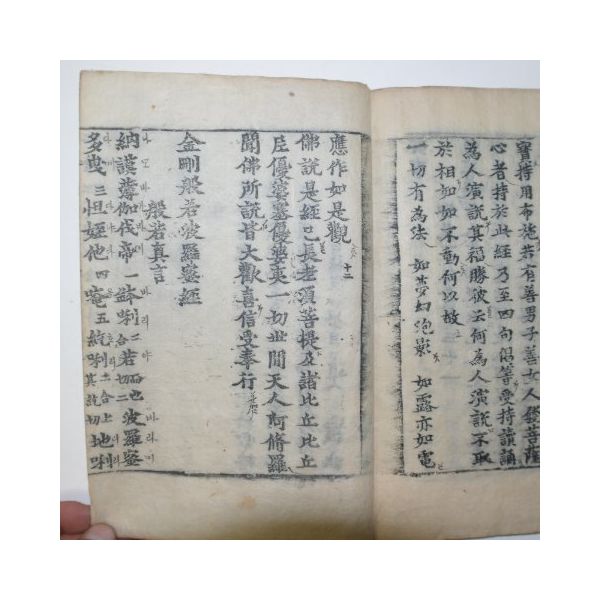 寶持用布施若有善男子善女人發菩薩
心者持於此經乃至四句偈等受持讀誦
為人演說其福勝彼云何為人演說不取
於相如如不動何以故
一切有為法 如夢幻泡影 如露亦如電
應作如是觀
佛說是經已長老須菩提及諸比丘比丘
臣優婆塞優婆夷一切世間天人阿脩羅
聞佛所說皆大歡喜信受奉行
金剛般若波羅蜜經
般若真言
納謨薄伽伐帝一鉢唎二合若 波羅蜜
多曳三怛姪他四唵五 地唎